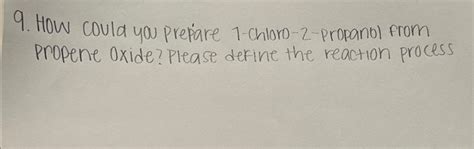 9. How could you prepare 1-chloro-2-propanol from
propene oxide? Please define the reaction process